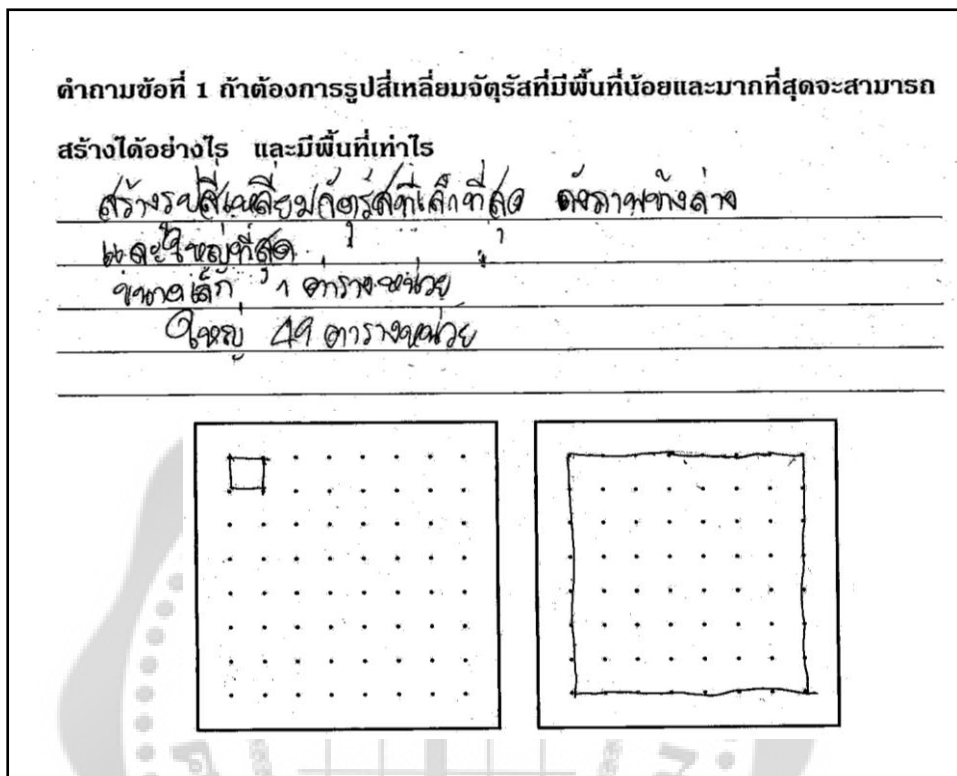 คำถามข้อที่ 1 ถ้าต้องการรูปสี่เหลี่ยมจัตุรัสที่มีพื้นที่น้อยและมากที่สุดจะสามารถ
สร้างได้อย่างไร และมีพื้นที่เท่าไร
สร้างรูปสี่เหลี่ยมจัตุรัสที่เล็กที่สุด ดังภาพข้างล่าง
และใหญ่ที่สุด
ขนาดเล็ก 1 ตารางหน่วย
ใหญ่ 49 ตารางหน่วย